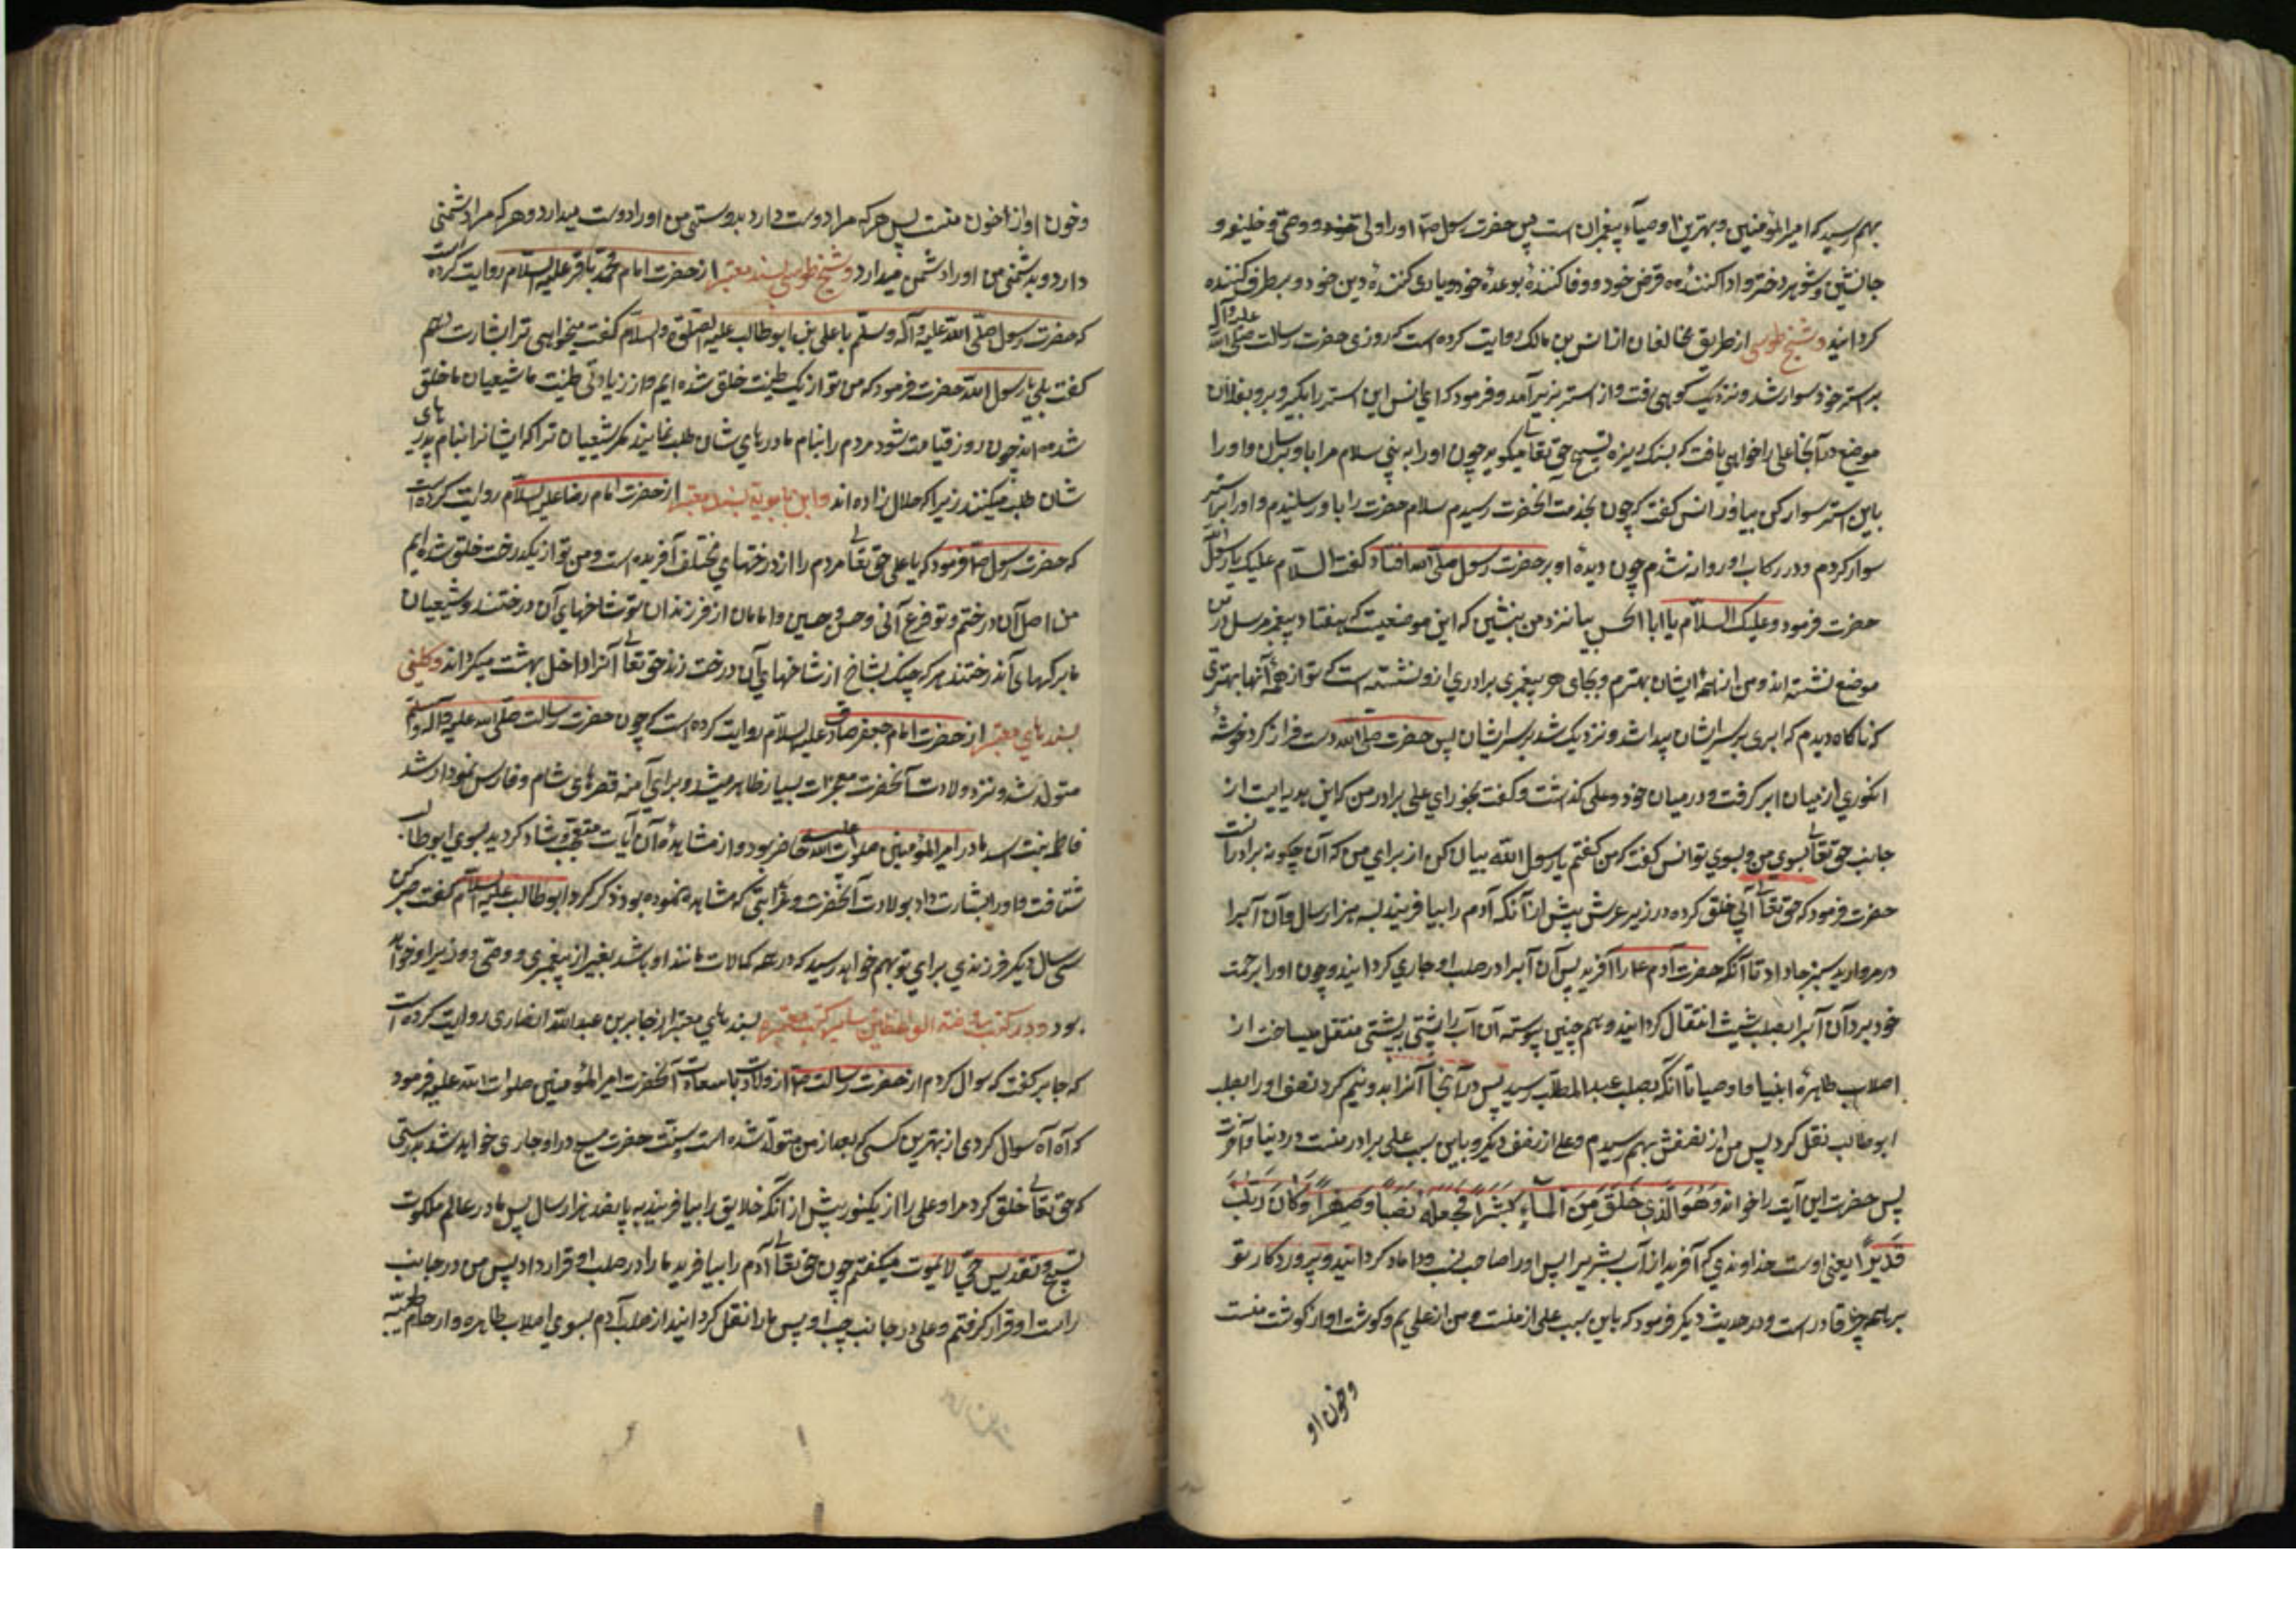 بهم رسید که امیر المؤمنین و بهترین اوصیاء پیغمبران است پس حضرت رسول ص اورا ولی خود و وصی و خلیفه و
جانشین و شوهر دختر و ادا کننده قرض خود و وفا کننده بوعده خود و یاری کننده دین خود و برطرف کننده
کردانید و شیخ طوسی از طریق مخالفان از انس بن مالک روایت کرده است که روزی حضرت رسالت صلی الله علیه وآله
بر استر خود سوار شد و نزدیک کوهی رفت و از استر بزیر آمد و فرمود که ای انس این استر را بکیر و برو بفلان
موضع در آنجا علی را خواهی یافت که بسنک ریزه تسبیح حق تعالی میکوید چون اورا به بینی سلام مرا باو برسان و اورا
باین استر سوار کن بیاور انس کفت که چون بخدمت آنحضرت رسیدم سلام حضرت را باو رسانیدم و اورا بر استر
سوار کردم و در رکاب او روانه شدم چون دیده او بر حضرت رسول صلی الله افتاد کفت السلام علیک یا رسول الله
حضرت فرمود و علیک السلام یا ابا الحسن بیا نزد من بنشین که این موضعیست که هفتاد پیغمبر مرسل در این
موضع نشسته اند و من از همه ایشان بهترم و بجای هر پیغمبری برادری از و نشسته است که تو از همه آنها بهتری
که ناکاه دیدم که ابری بر سر ایشان پیدا شد و نزدیک شد بر سر ایشان پس حضرت صلی الله دست فراز کرد خوشه
انکوری از میان ابر کرفت و در میان خود و علی کذاشت و کفت بخور ای علی برادر من که این هدیه ایست از
جانب حق تعالی بسوی من و بسوی تو انس کفت که من کفتم یا رسول الله بیان کن از برای من که آن چکونه برادر تست
حضرت فرمود که حق تعالی آبی خلق کرده در زیر عرش پیش از آنکه آدم را بیافریند بسه هزار سال و آن آبرا
در مروارید سبز جا داد تا آنکه حضرت آدم ع را آفرید پس آن آبرا در صلب او جاری کردانید و چون اورا برحمت
خود برد آن آبرا بصلب شیث انتقال کردانید و هم چنین پیوسته آن آب را پشتی به پشتی منتقل میساخت از
اصلاب طاهره انبیا و اوصیا تا آنکه بصلب عبد المطلب رسید پس در آنجا آنرا بدو نیم کرد نصف اورا بصلب
ابو طالب نقل کرد پس من از نصفش بهم رسیدم و علی از نصف دیکر و باین سبب علی برادر منست در دنیا و آخرت
پس حضرت این آیت را خواند وَهُوَ الَّذِي خَلَقَ مِنَ الْمَاءِ بَشَرًا فَجَعَلَهُ نَسَبًا وَصِهْرًا وَكَانَ رَبُّكَ
قَدِيرًا یعنی اوست خداوندی که آفرید از آب بشریرا پس اورا صاحب نسب و داماد کردانید و پروردکار تو
بر همه چیز قادر است و در حدیث دیکر فرمود که باین سبب علی از منست و من از علی یم و کوشت او از کوشت منست
وخون او
وخون او از خون منست پس هر که مرا دوست دارد بدوستی من اورا دوست میدارد و هر که مرا دشمنی
دارد و بدشمنی من اورا دشمن میدارد و شیخ طوسی بسند معتبر از حضرت امام محمد باقر علیه السلام روایت کرده است
که حضرت رسول صلی الله علیه وآله وسلم با علی بن ابو طالب علیه الصلوة والسلام کفت میخواهی ترا بشارت دهم
کفت بلی یا رسول الله حضرت فرمود که من تو از یک طینت خلق شده ایم و از زیادتی طینت ما شیعیان ما خلق
شده اند چون روز قیامت شود مردم را بنام مادرهای شان طلب نمایند مکر شیعیان ترا که ایشانرا بنام پدرهای
شان طلب میکنند زیرا که حلال زاده اند و ابن بابویه بسند معتبر از حضرت امام رضا علیه السلام روایت کرده است
که حضرت رسول ص فرمود که یا علی حق تعالی مردم را از درختهای مختلف آفریده است و من تو از یکدرخت خلق شده ایم
من اصل آن درختم و تو فرع آنی و حسن و حسین و امامان از فرزندان تو شاخهای آن درختند و شیعیان
ما برکهای آندرختند هر که چنک بشاخ از شاخهای آن درخت زند حق تعالی آنرا داخل بهشت میکرداند و کلینی
بسندهای معتبر از حضرت امام جعفر صادق علیه السلام روایت کرده است که چون حضرت رسالت صلی الله علیه وآله وسلم
متولد شد و نزد ولادت آنحضرت معجزات بسیار ظاهر میشد و برای آمنه قصرهای شام و فارس نمودار شد
فاطمه بنت اسد مادر امیر المؤمنین صلوات الله علیه حاضر بود و از مشاهده آن آیات متعجب و شاد کردید بسوی ابو طالب
شتافت و اورا بشارت داد بولادت آنحضرت و غرایبی که مشاهده نموده بود ذکر کرد ابو طالب علیه السلام کفت صبر کن
سی سال دیکر فرزندی برای تو بهم خواهد رسید که در همه کمالات مانند او باشد بغیر از پیغمبری و وصی و وزیر او خواهد
بود و در کتب روضة الواعظین و سایر کتب معتبره بسندهای معتبر از جابر بن عبد الله انصاری روایت کرده است
که جابر کفت که سوال کردم از حضرت رسالت ص از ولادت با سعادت آنحضرت امیر المؤمنین صلوات الله علیه فرمود
که آه آه سوال کردی از بهترین کسی که بعد از من متولد شده است و سنت حضرت مسیح در او جاری خواهد شد بدرستی
که حق تعالی خلق کرد مرا و علی را از یکنور پیش از آنکه خلایق را بیافریند به پانصد هزار سال پس ما در عالم ملکوت
تسبیح و تقدیس حی لایموت میکفتم چون حق تعالی آدم را بیافرید ما را در صلب او قرار داد پس من در جانب
راست او قرار کرفتم و علی در جانب چپ او پس ما را نقل کردانید از صلب آدم بسوی اصلاب طاهره و ارحام طیبه